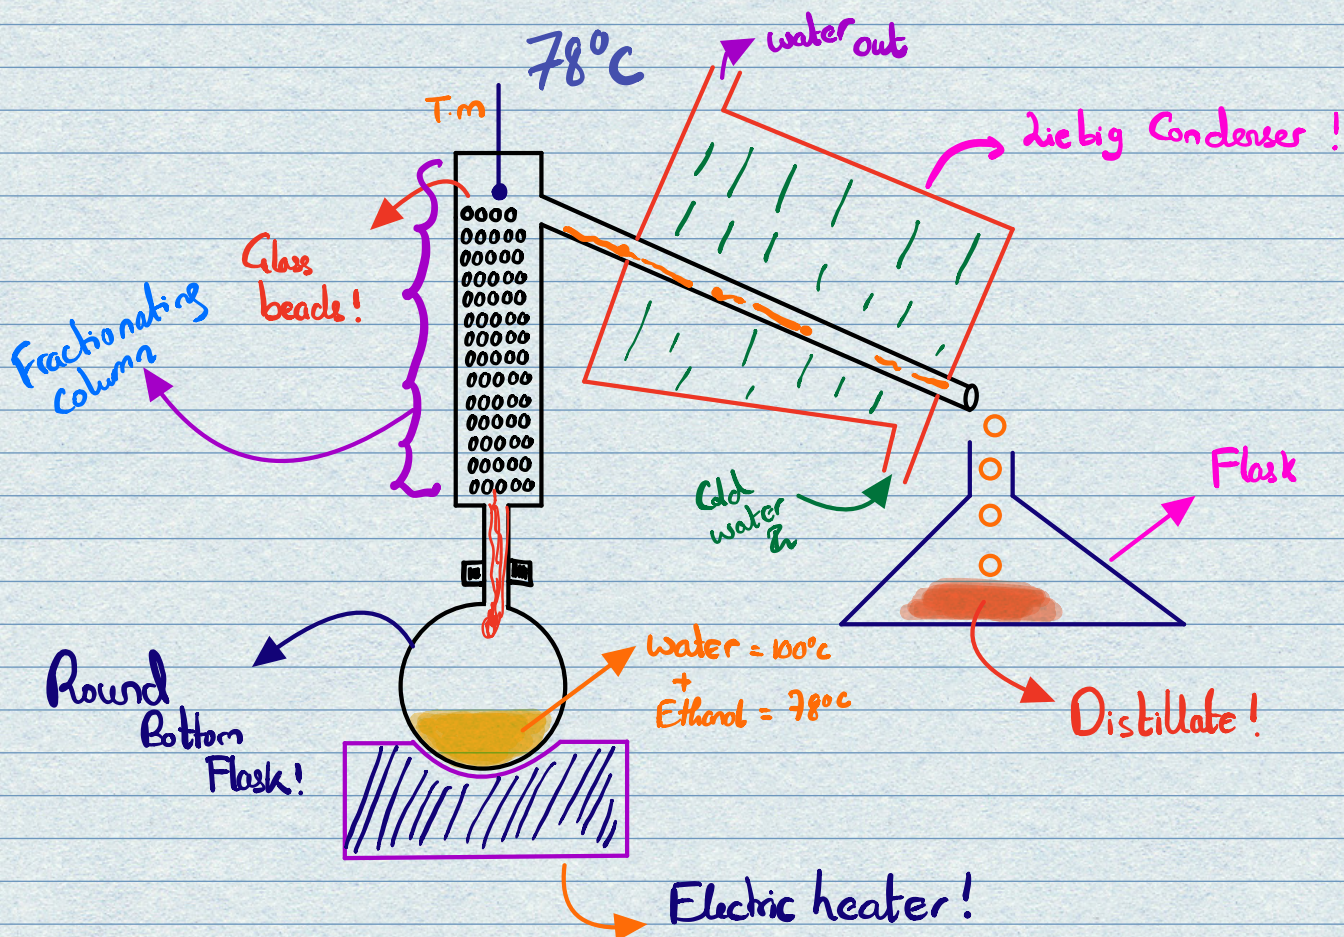 78°C
water out
T.m
Liebig Condenser !
Glass
beads!
Fractionating
Column
Cold
water
In
Flask
Round
Bottom
Flask!
water = 100°C
+
Ethanol = 78°C
Distillate!
Electric heater!